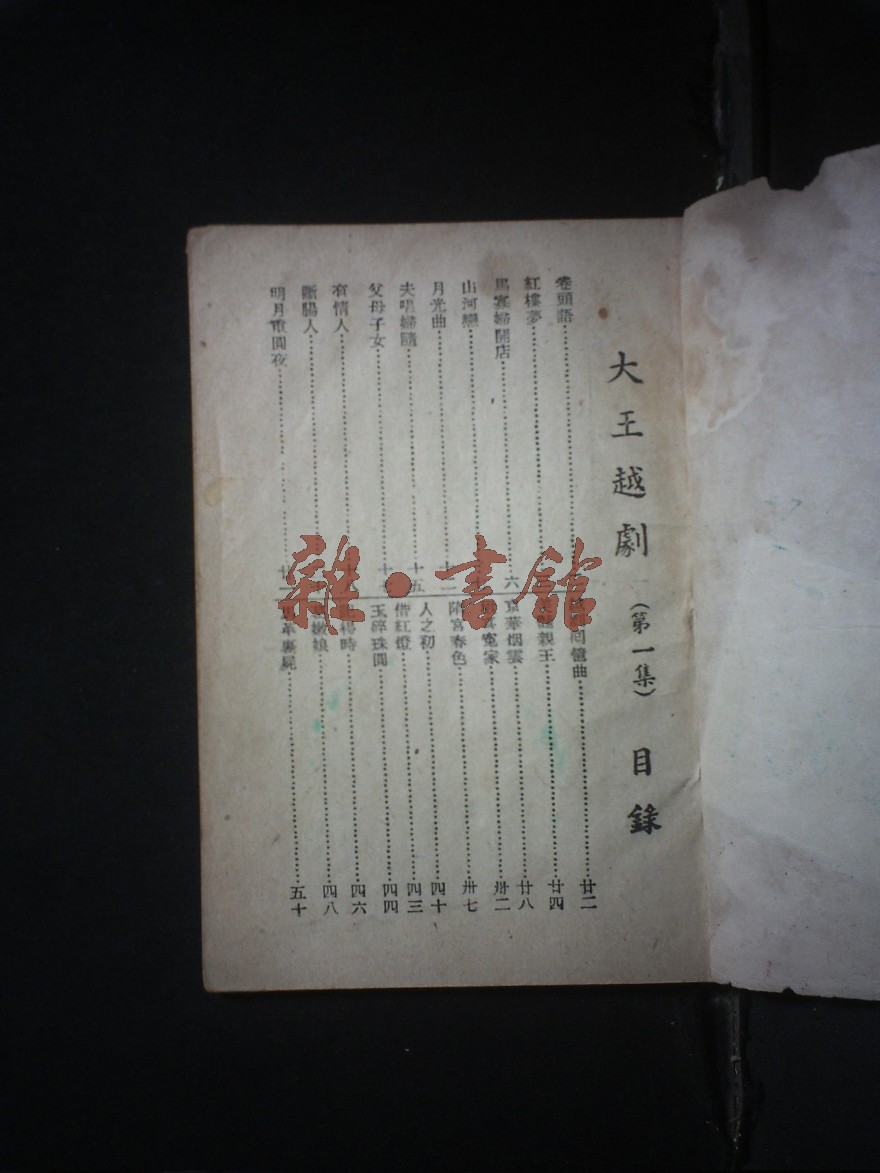 大王越劇(第一集) 目錄
卷頭語
紅樓夢
馬寡婦開店 六
山河戀
月光曲 十一
夫唱婦隨 十五
父母子女
有情人
斷腸人
明月重圓夜
回憶曲 廿二
親王 廿四
京華烟雲 廿八
寃家 卅二
隋宮春色 卅七
人之初 四十
借紅燈 四三
玉碎珠圓 四四
時 四六
娘 四八
革裹屍 五十
雜·書館